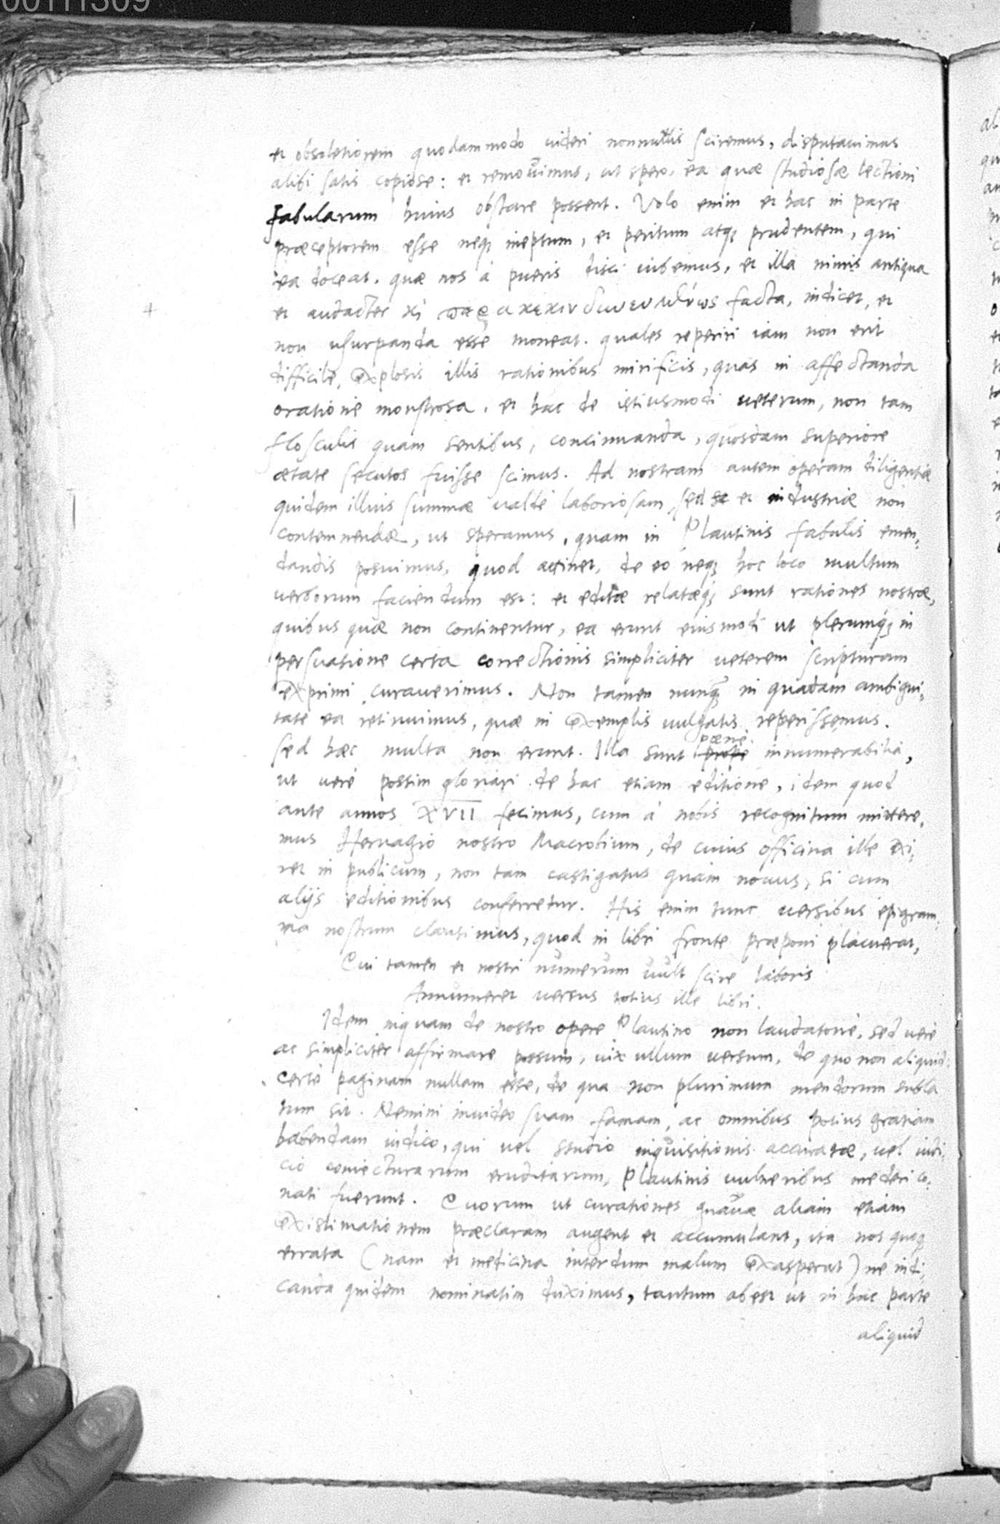 00111309
et obsoletiorem quodammodo uideri nonnullis sciremus, disputauimus
alibi satis copiose: et remouimus, ut spero, ea quæ studiosæ lectioni
fabularum huius obstare possent. Volo enim et hac in parte
præceptorem esse neq; ineptum, et peritum atq; prudentem, qui
ea doceat, quæ nos à pueris disci iubemus, et illa nimis antiqua
et audacter facta, indicet, et
non usurpanda esse moneat. quales reperiri iam non erit
difficile, explosis illis rationibus mirificis, quas in affectanda
oratione monstrosa, et hac de istiusmodi ueterum, non tam
flosculis quam sentibus, concinnanda, quosdam superiore
ætate secutos fuisse scimus. Ad nostram autem operam diligentiæ
quidem illius summæ ualdè laboriosam, sed et industriæ non
contemnendæ, ut speramus, quam in Plautinis fabulis emen,
dandis posuimus, quod attinet, de eo neq; hoc loco multum
uerborum faciendum est: et editæ relatæq; sunt rationes nostræ,
quibus quæ non continentur, ea erunt eiusmodi ut plerunq; in
persuasione certa correctionis simpliciter ueterem scripturam
exprimi curauerimus. Non tamen nunq̃ in quadam ambigui,
tate ea retinuimus, quæ in exemplis uulgatis reperissemus.
pænè
sed hæc multa non erunt. Illa sunt propè innumerabilia,
ut uerè possim gloriari de hac etiam editione, idem quod
ante annos XVII fecimus, cum à nobis recognitum mittere,
mus Heruagio nostro Macrobium, de cuius officina ille exi,
ret in publicum, non tam castigatus quàm nouus, si cum
alijs editionibus conferretur. His enim tunc uersibus epigram
ma nostrum clausimus, quod in libri fronte præponi placuerat,
Qui tamen et nostri numerum uult scire laboris
Annumeret uersus totius ille libri.
Idem inquam de nostro opere Plautino non laudatoriè, sed uerè
ac simpliciter affirmare possum, uix ullum uersum, de quo non aliquid:
certè paginam nullam esse, de qua non plurimum mendorum subla
tum sit. Nemini inuideo suam famam, ac omnibus potius gratiam
habendam iudico, qui uel studio inquisitionis accuratæ, uel iudi,
cio coniecturarum eruditarum, Plautinis uulneribus mederi co,
nati fuerunt. Quorum ut curationes gnauæ aliàm etiam
existimationem præclaram augent et accumulant, ita nos quoq;
errata (nam et medicina interdum malum exasperat) ne indi,
canda quidem nominatim duximus, tantum abest ut in hac parte
aliquid